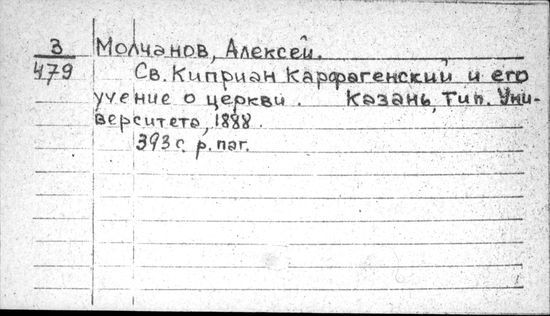 З Молчанов, Алексей.
479 Св. Киприан Карфагенский и его
учение о церкви. Казань, Тип. Уни-
верситета, 1888.
393 с. р. паг.